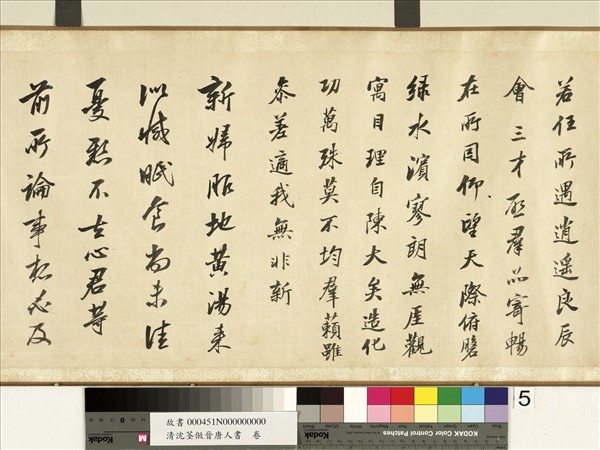 若任所遇逍遙良辰
會三才啟羣品寄暢
在所因仰望天際俯瞻
綠水濱寥朗無厓觀
寓目理自陳大矣造化
功萬殊莫不均羣籟雖
參差適我無非新
新婦服地黃湯來
似減眠食尚未佳
憂懸不去心君等
前所論事想必及
Kodak
M
故書 000451N000000000
清沈荃倣晉唐人書 卷
KODAK Color Control Patches
Kodak
5